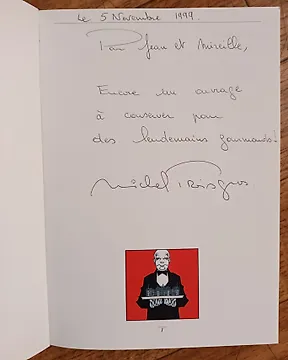 Le 5 Novembre 1999.
Pour Jean et Mireille,
Encore un ouvrage
à conserver pour
des lendemains gourmands !
Michel Troisgros